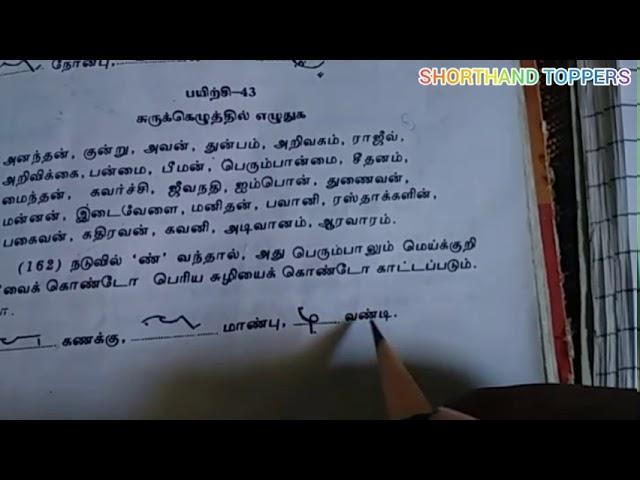 நோன்பு,
SHORTHAND TOPPERS
பயிற்சி-43
சுருக்கெழுத்தில் எழுதுக
அனந்தன், குன்று, அவன், துன்பம், அறிவகம், ராஜீல்,
அறிவிக்கை, பன்மை, பீமன், பெரும்பான்மை, சீதனம்,
மைந்தன், கவர்ச்சி, ஜீவநதி, ஐம்பொன், துணைவன்,
மன்னன், இடைவேளை, மனிதன், பவானி, ரஸ்தாக்களின்,
பகைவன், கதிரவன், கவனி, அடிவானம், ஆரவாரம்.
(162) நடுவில் 'ண்' வந்தால், அது பெரும்பாலும் மெய்க்குறி
வைக் கொண்டோ பெரிய சுழியைக் கொண்டோ காட்டப்படும்.
கணக்கு, மாண்பு, வண்டி.